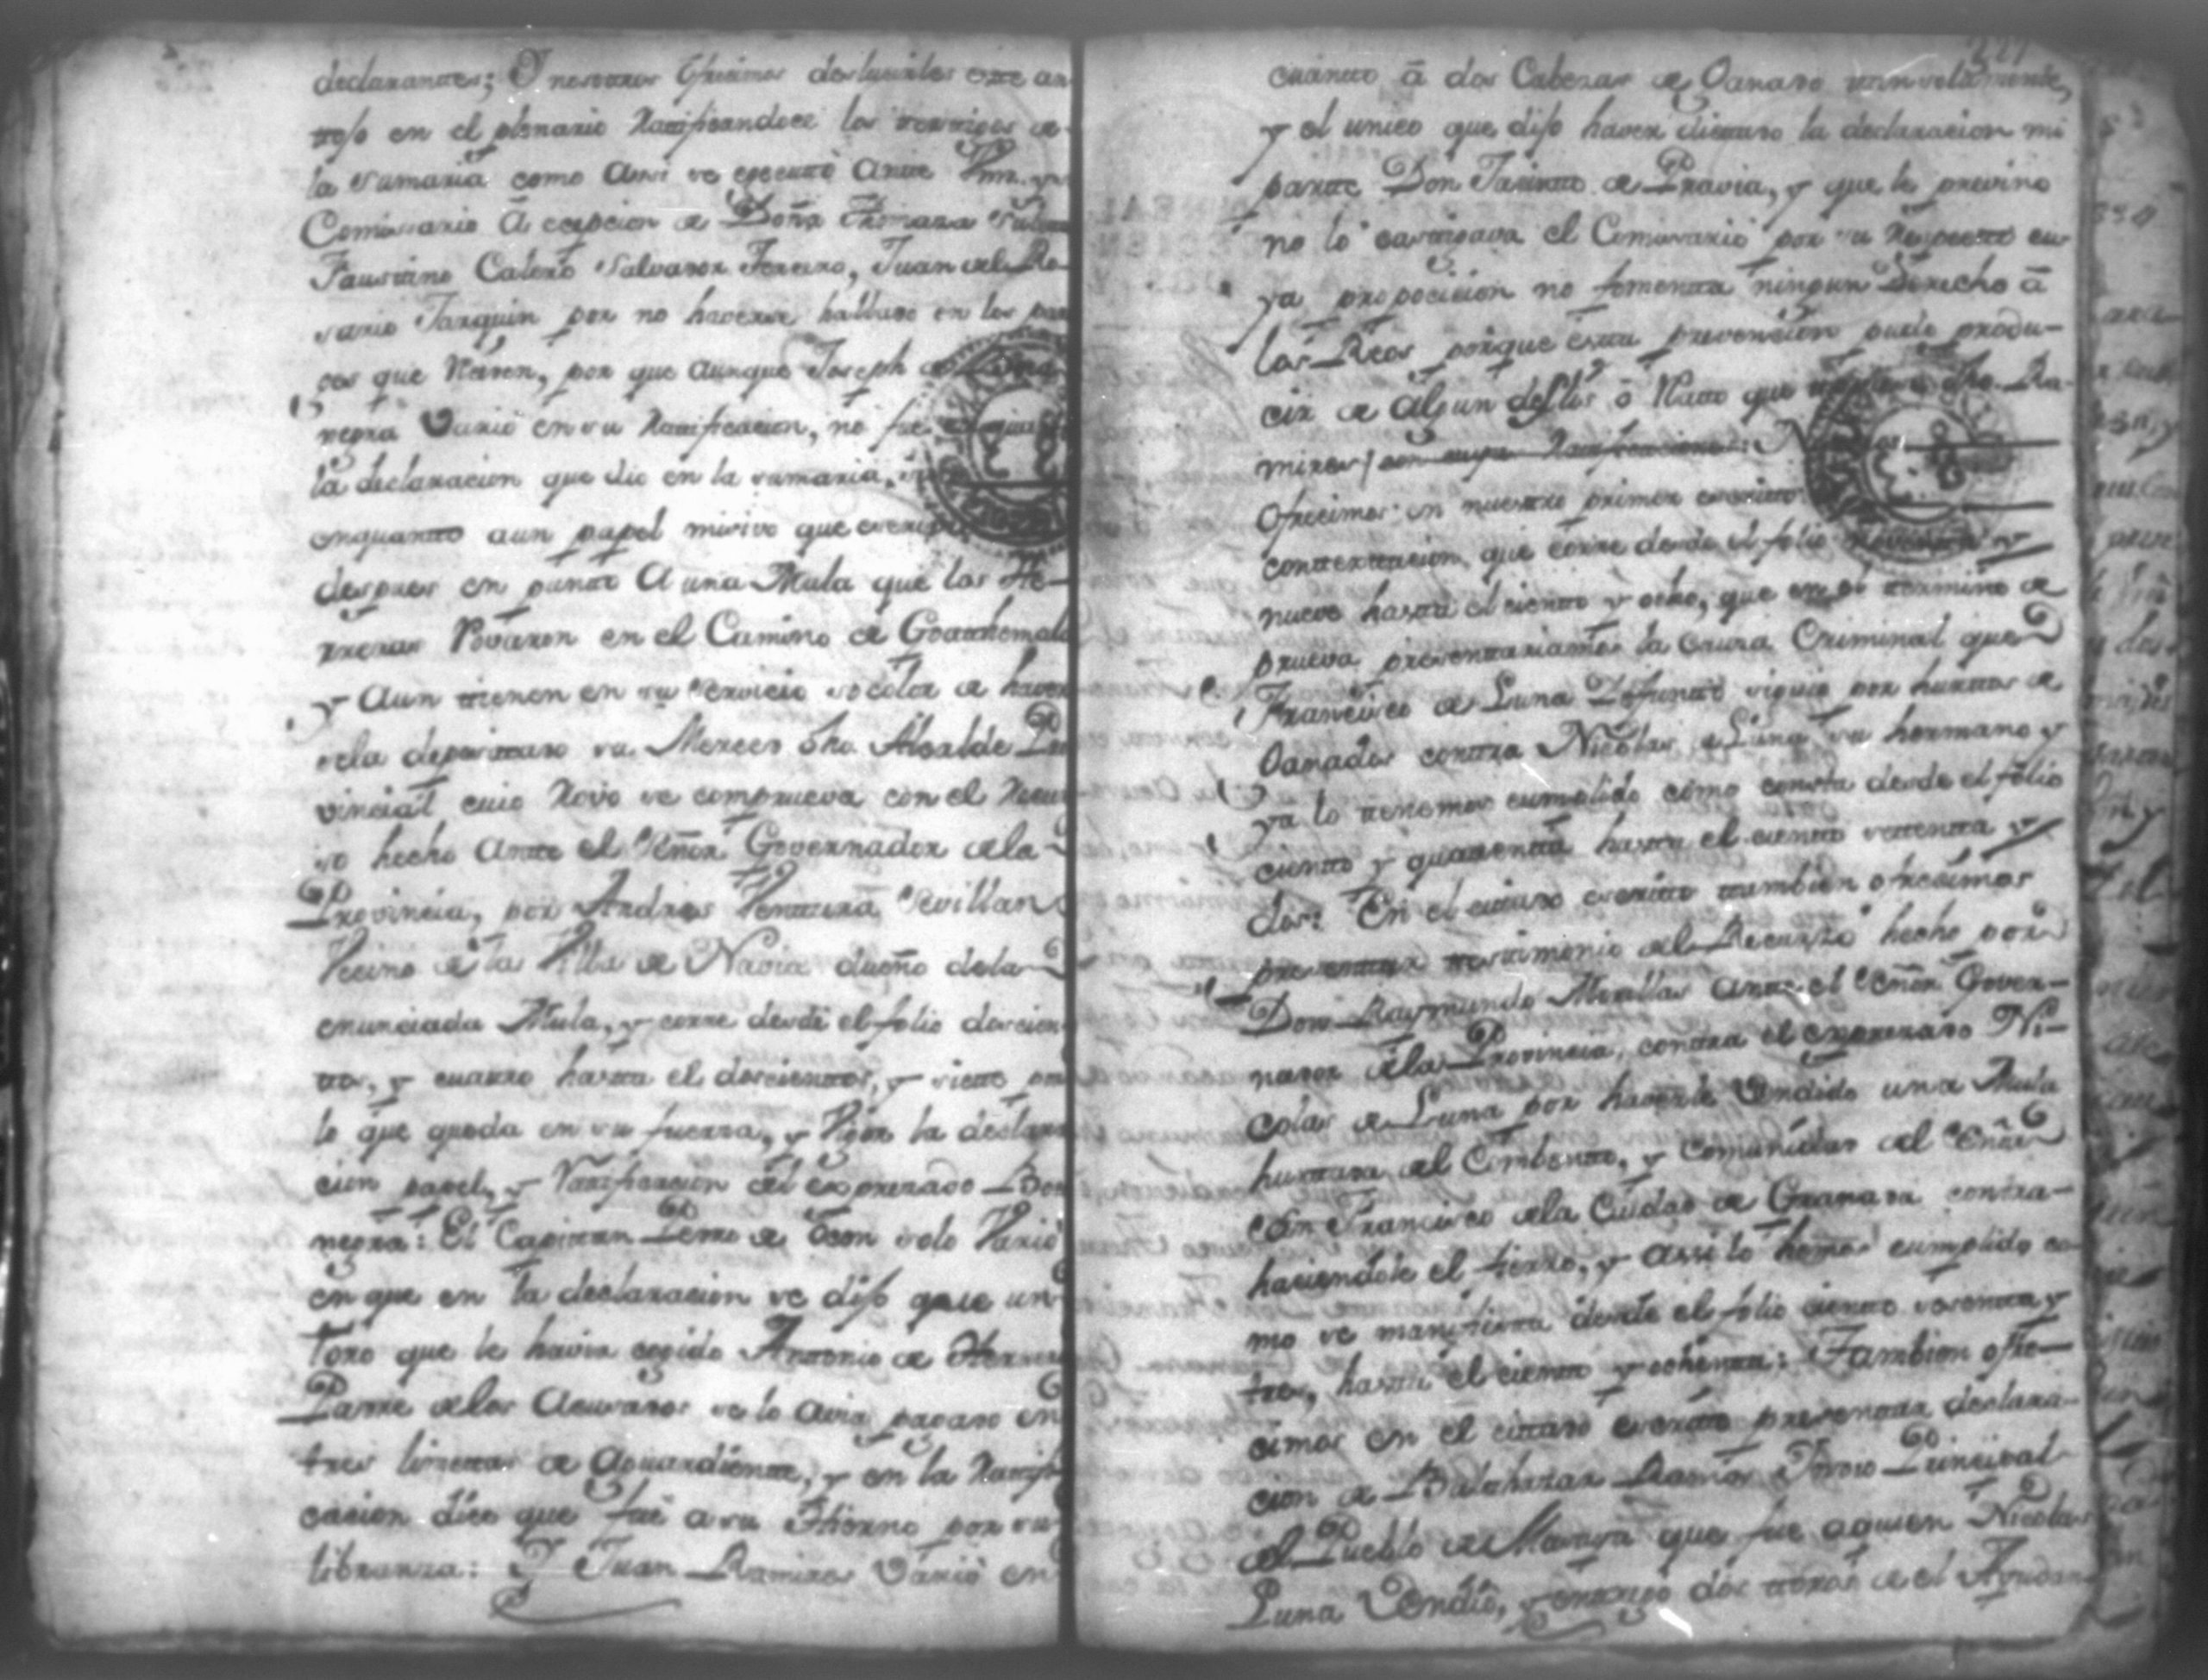 declarantes; Y nosotros ofrecimos desluirles este an
tojo en el plenario Ratificandoce los testigos de
la sumaria como assi se executó ante Vm. y
Comissario á cepcion de Doña Thomasa
Faustino Calero Salvador Foreiro, Juan del Ro
sario Jarquin por no haverse hallado en los par
ces que Reciden, por que aunque Joseph de
negra Varió en su Ratificacion, no fue
la declaracion que dio en la sumaria,
enquanto aun papel misivo que escrivio
despues en punto A una Mula que los He
rreras Rovaron en el Camino de Goathemala
y aun tienen en su servicio socolor de haver
sela depocitado su Merced dho Alcalde Pro
vincial cuio Rovo se comprueva con el Recur
so hecho Ante el Señor Governador de la
Provincia, por Andres Ventura Sevillano
Vecino de la Villa de Navia dueño de la
enunciada Mula, y corre desde el folio doscien
tos, y cuatro hasta el doscientos, y siete por
lo que queda en su fuerza, y Vigor la declara
cion papel, y Ratificacion del expresado Bo
negra: El Capitan Pedro de solo Varió
en que en la declaracion se dijo que un
Toro que le havia cogido Antonio de Herrera
Padre de los Acusados se lo avia pagado en
tres limetas de Aguardiente, y en la Ratifi
cacion dice que fue a su Hierno por su
libranza: Y Juan Ramires Varió en
cuanto á dos Cabezas de Ganado
y el unico que dijo haver dictado la declaracion mi
parte Don Jacinto de Pravia, y que le previno
no lo castigava el Comissario por su Respecto cu
ya propocicion no fomenta ningun Derecho á
los Reos porque esta prevencion pudo produ-
cir de algun deslis ó Rato que dho Ra-
mires
Ofrecimos en nuestro primer escrito
contextacion que corre desde el folio y
nueve hasta el ciento y ocho, que en el termino de
prueva presentariamos la Causa Criminal que
Francisco de Luna Difunto siguió por hurtos de
Ganados contra Nicolas de Luna su hermano y
ya lo tenemos cumplido como consta desde el folio
ciento y quarenta hasta el ciento setenta y
dos: En el citado escrito tambien ofrecimos
presentar testimonio del Recurso hecho por
Don Raymundo Morillas ante el Señor Gover-
nador de la Provincia, contra el expresado Ni-
colas de Luna por haverle Vendido una Mula
hurtada del Combento, y Comunidad del Señor
San Francisco de la Ciudad de Granada contra-
haciendole el fierro, y assi lo hemos cumplido co-
mo se manifiesta desde el folio ciento sesenta y
tres, hasta el ciento y ochenta: Tambien ofre-
cimos en el citado escrito presentar declara-
cion de Balthazar Ramos Indio Principal
del Pueblo de Masaya que fue aquien Nicolas
Luna Vendio, y entregó dos toros de el Ayudan